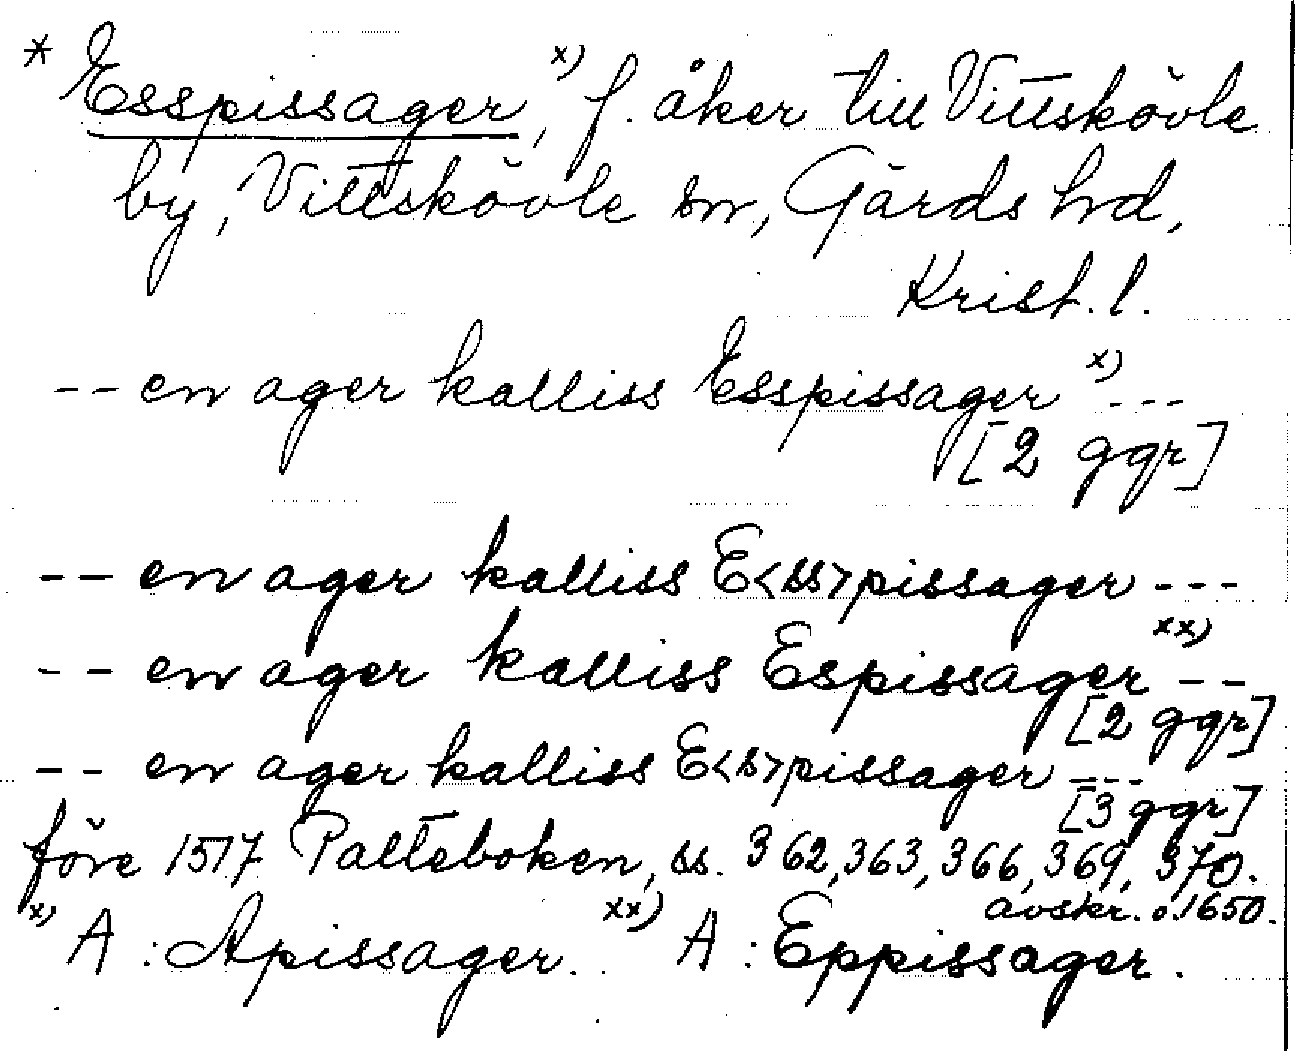 * Esspissager, x) f. åker till Vittskövle
by, Vittskövle sn, Gärds hd,
Krist. l.
-- en ager kalliss Esspissager x) ---
[2 ggr]
-- en ager kalliss E<ss>pissager ---
-- en ager kalliss Espissager xx) --
[2 ggr]
-- en ager kalliss E<s>pissager ---
[3 ggr]
före 1517 Palteboken, ss. 362, 363, 366, 369, 370.
avskr. o. 1650.
x) A : Apissager. xx) A : Eppissager.